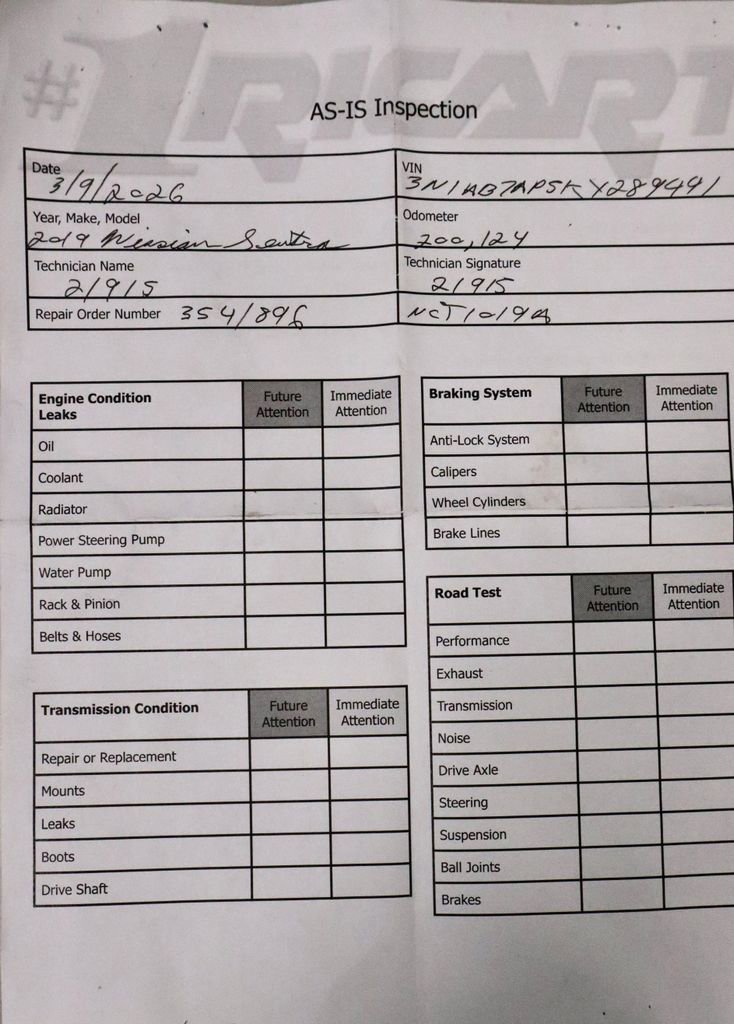 #1 RICART
AS-IS Inspection
Date
3/9/2026
VIN
3N1AB7AP5KY289491
Year, Make, Model
2019 Nissan Sentra
Odometer
200,124
Technician Name
21915
Technician Signature
21915
Repair Order Number 354/896
NCT1019A
Engine Condition
Leaks
Future Attention
Immediate Attention
Oil
Coolant
Radiator
Power Steering Pump
Water Pump
Rack & Pinion
Belts & Hoses
Transmission Condition
Future Attention
Immediate Attention
Repair or Replacement
Mounts
Leaks
Boots
Drive Shaft
Braking System
Future Attention
Immediate Attention
Anti-Lock System
Calipers
Wheel Cylinders
Brake Lines
Road Test
Future Attention
Immediate Attention
Performance
Exhaust
Transmission
Noise
Drive Axle
Steering
Suspension
Ball Joints
Brakes